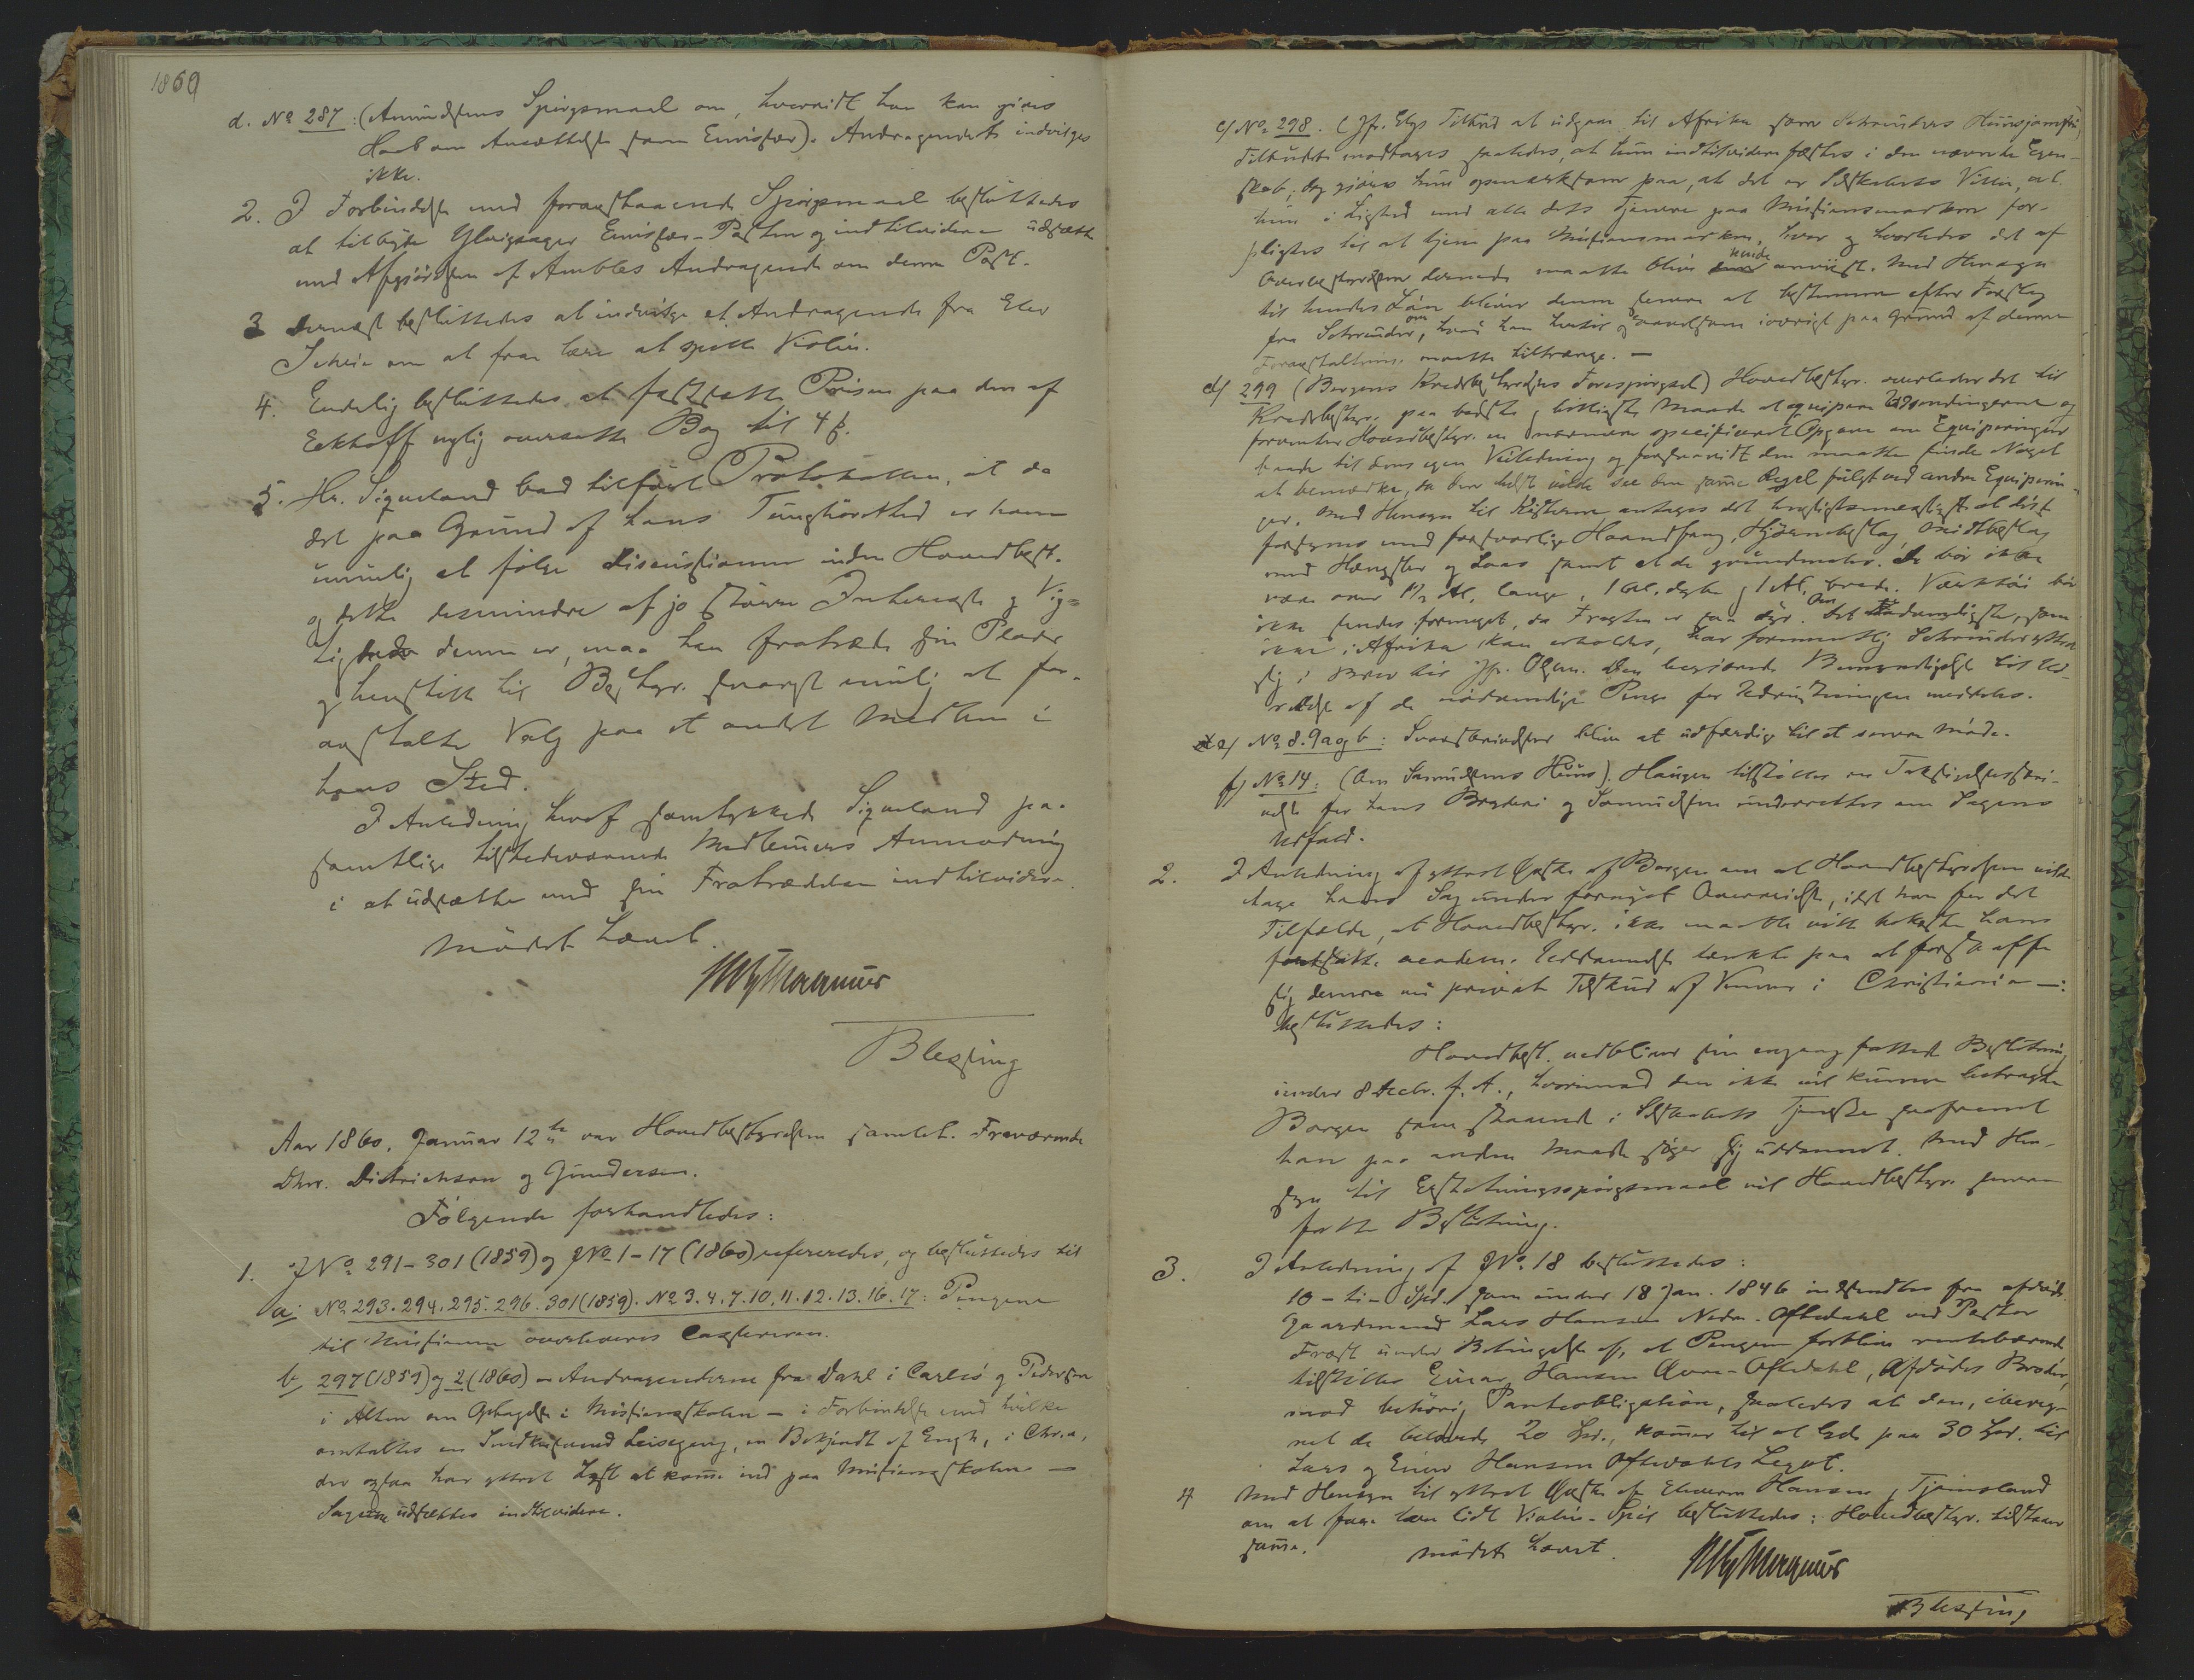 1860
d. No 287: (Amundsens Spørgsmaal om, hvorvidt han kan gives
Haab om Ansættelse som Emissær). Andragendet indvilges
ikke.
2. I Forbindelse med foranstaaende Spørgsmaal besluttedes
at tilbyde Ylvisager Emissær-Posten og indtilvidere udsætte
med Afgjørelsen af Ambles Andragende om denne Post.
3 Dernæst besluttedes at indvilge et Andragende fra Elev
Scheie om at faa lære at spille Violin.
4. Endelig besluttedes at fastsætte Prisen paa den af
Eckhoff nylig oversatte Bog til 4 ß.
5. Hr. Sigveland bad tilført Protokollen, at da
det paa Grund af hans Tunghørethed er ham
umulig at følge Discussionen inden Hovedbest.
og dette desmindre af jo større Interesse og Vig=
tighed denne er, maa han fratræde sin Plads
og henstille til Bestyr. snarest mulig at for-
anstalte Valg paa et andet Medlem i
hans Sted.
I Anledning heraf samtykkede Sigveland paa
samtlige tilstedeværende Medlemmers Anmodning
i at udsætte med sin Fratrædelse indtilvidere.
Mødet hævet.
Blessing
Aar 1860, Januar 12te var Hovedbestyrelsen samlet. Fraværende
Dhrr. Ditrichson og Gundersen.
Følgende forhandledes:
1. J No 291-301 (1859) og JNo 1-17 (1860) refereredes, og besluttedes til
a. No 293. 294. 295. 296. 301 (1859). No 3. 4. 7. 10. 11. 12. 13. 16. 17: Pengene
til Missionen overleveres Cassereren.
b, 297 (1859) og 2 (1860) - Andragenderne fra Dahl i Carlsø og Pedersen
i Alten om Optagelse i Missionsskolen - i Forbindelse med hvilke
omtaltes en Leisegang, en Bekjendt af Engh, i Chr.a,
der ogsaa har yttret Lyst at komme ind paa Missionsskolen -
Sagerne udsættes indtilvidere.
c/ No 298. (Jfr. Elys Tilbud at udgaa til Afrika som Schreuders Huusjomfru)
Tilbudet modtages saaledes, at hun indtilvidere fæstes i den nævnte Egen-
skab; dog gjøres hun opmærksom paa, at det er Selskabets Villie, at
hun i Lighed med alle dets Tjenere paa Missionsmarken for-
pligtes til at tjene paa Missionsmarken, hvor og hvorledes det af
Overbestyrelsen dernede maatte blive hende anviist. Med Hensyn
til hendes Løn bliver denne senere at bestemme efter Forslag
fra Schreuder, om hvad han hertil saavelsom iøvrigt paa Grund af denne
Foranstaltning maatte tiltrænge. -
d/ 299 (Bergens Kredsbestyrelses Forespørgsel) Hovedbestyr. overlader det til
Kredsbestyr. paa bedste og billigste Maade at equipere Udsendingerne og
forventer Hovedbestyr. en nærmere specificeret Opgave om Equiperingen
baade til dens egen Veiledning og forsaavidt den maatte finde Noget
at bemærke, da den helst vilde see den samme Regel fulgt ved andre Equiperin-
ger. Med Hensyn til Kisterne antages det hensigtsmæssigst at disse
forsynes med forsvarlige Haandfang, Hjørnebeslag, Midtbeslag
med Hængsler og Laas samt at de grundmales. De bør ikke
være over 1½ Al. lange, 1 Al. dybe og 1 Al. brede. Værktøi bør
ikke sendes formeget, da Fragten er saa dyr. Om det Nødvendigste, som
ikke i Afrika kan erholdes, har formentlig Schreuder yttret
sig i Brev til Jfr. Olsen. Den begjærende Bemyndigelse til Ud-
redelse af de nødvendige Penge for Udrustningen meddeles.
e/ No 8. 9 a og b: Svarskrivelser blive at udfærdige til et senere Møde.
f/ No 14: (Om Samuelsens Huus). Haugen tilstilles en Taksigelsesskri-
velse for hans Bryderi og Samuelsen underrettes om Sagens
Udfald.
2. I Anledning af yttret Ønske af Borgen om at Hovedbestyrelsen vilde
tage hans Sag under fornyet Overveielse, idet han for det
Tilfælde, at Hovedbestyr. ikke maatte ville bekoste hans
fortsatte academ. Uddannelse tænkte paa at forskaffe
sig denne ved privat Tilskud af Venner i Christiania -:
besluttedes:
Hovedbest. vedbliver sin engang fattede Beslutning
under 8 Decbr. f. A., hvorimod den ikke vil kunne betragte
Borgen som staaende i Selskabets Tjeneste saafremt
han paa anden Maade søger sig uddannet. Med Hen-
syn til Erstatningsspørgsmaal vil Hovedbestyr. senere
fatte Beslutning.
3. I Anledning af JNo 18 besluttedes:
10 - ti - Spd. som under 18 Jan. 1846 indsendtes fra afdøde
Gaardmand Lars Hansen Nedre-Oftedahl ved Pastor
Frost under Betingelse af, at Pengene forblive rentebærende
tilstilles Einar Hansen Øvre-Oftedahl, Afdødes Broder,
mod behørig Panteobligation, saaledes at den, ibereg-
net de belovede 20 Spd., kommer til at lyde paa 30 Spd. til
Lars og Einar Hansen Oftedahls Legat.
4 Med Hensyn til yttret Ønske af Eleverne Hansen og Tjømsland
om at faa lære lidt Violin-Spil besluttedes: Hovedbestyr. tilstaaer
samme. Mødet hævet.
Blessing